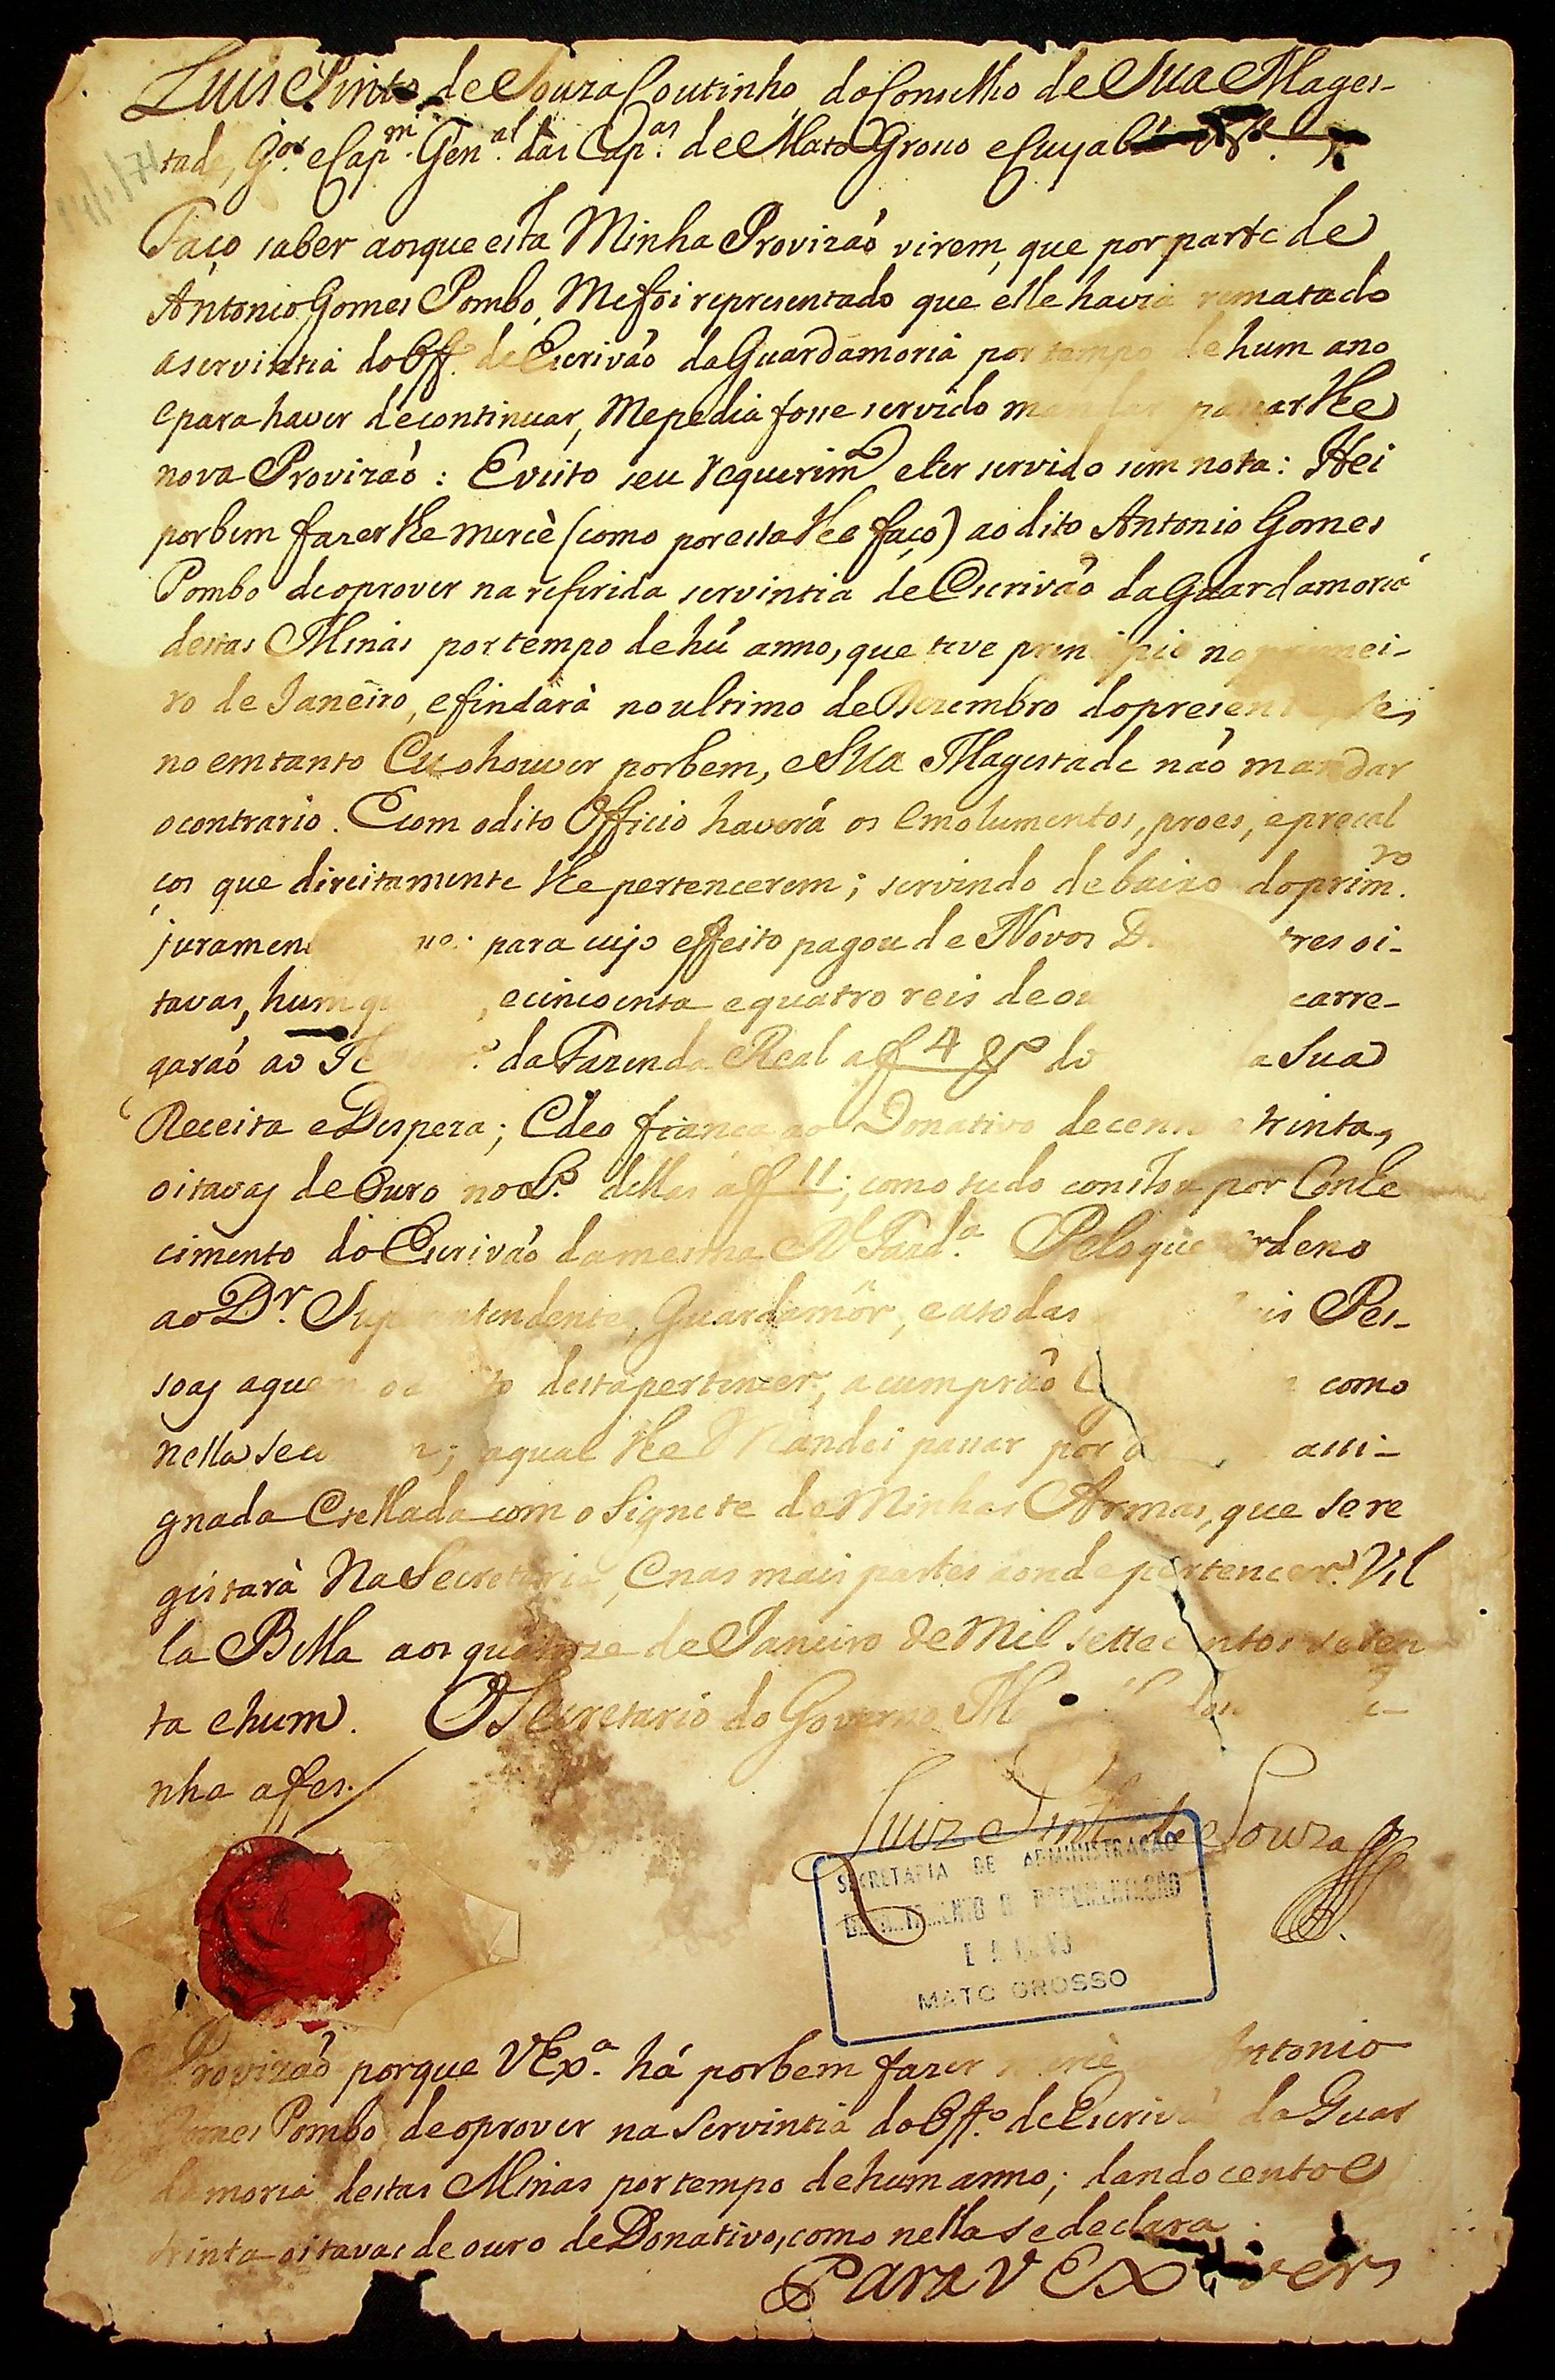 Luis Pinto de Souza Coutinho, do Conselho de Sua Mages-
tade, G.or e Cap.m Gen.al das Cap.as de Mato Grosso e Cuyabá
Faço saber aosque esta Minha Provizaõ virem, que por parte de
Antonio Gomes Pombo, Me foi representado que elle havia rematado
a serventia do Off.o de Escrivaõ da Guardamoria por tempo de hum ano
e para haver de continuar, Me pedia fosse servido mandar passar lhe
nova Provizaõ: E visto seu requerim.to e ter servido sem nota: Hei
por bem fazer lhe mercè (como por esta lhe faço) ao dito Antonio Gomes
Pombo de o prover na referida serventia de Escrivaõ da Guardamoria
destas Minas por tempo de hũ anno, que teve principio no primei-
ro de Janeiro, e findarà no ultimo de Dezembro do presente, se
no emtanto Eu o houver por bem, e Sua Magestade naõ mandar
o contrario. E com o dito Officio haverá os emolumentos, proes, e precal
ços que direitamente lhe pertencerem; servindo debaixo do prim.ro
para cujo effeito pagou de Novos tres oi-
tavas, hum e cincoenta e quatro reis de carre-
garaõ ao da Fazenda Real a f 4 do da Sua
Receita e Despeza; E deo fiança ao Donativo de cento e trinta
oitavas de Ouro no L.o dellas a f 11; como tudo constou por Conhe
cimento do Escrivaõ da mesma R.l Fazd.a Pelo que ordeno
ao D.r Superintendente, Guardamôr, e a todas Pes-
soas a quem desta pertencer, a cumpraõ como
nella se a qual lhe Mandei passar por assi-
gnada E sellada com o Signete de Minhas Armas, que se re
gistarà na Secretaria, E nas mais partes aonde pertencer. Vil
la Bella aos quatorze de Janeiro de Mil settecentos seten
ta e hum. O Secretario do Governo
nha a fes.
Luiz Pinto de Souza
SECRETARIA DE ADMINISTRAÇÃO
DOCUMENTAÇÃO
MATO GROSSO
Provizaõ porque V Ex.a há por bem fazer mercè Antonio
Gomes Pombo de o prover na Serventia do Off.o de Escrivaõ da Guar
damoria destas Minas por tempo de hum anno; dando cento e
trinta oitavas de ouro de Donativo, como nella se declara.
Para V Ex.a ver